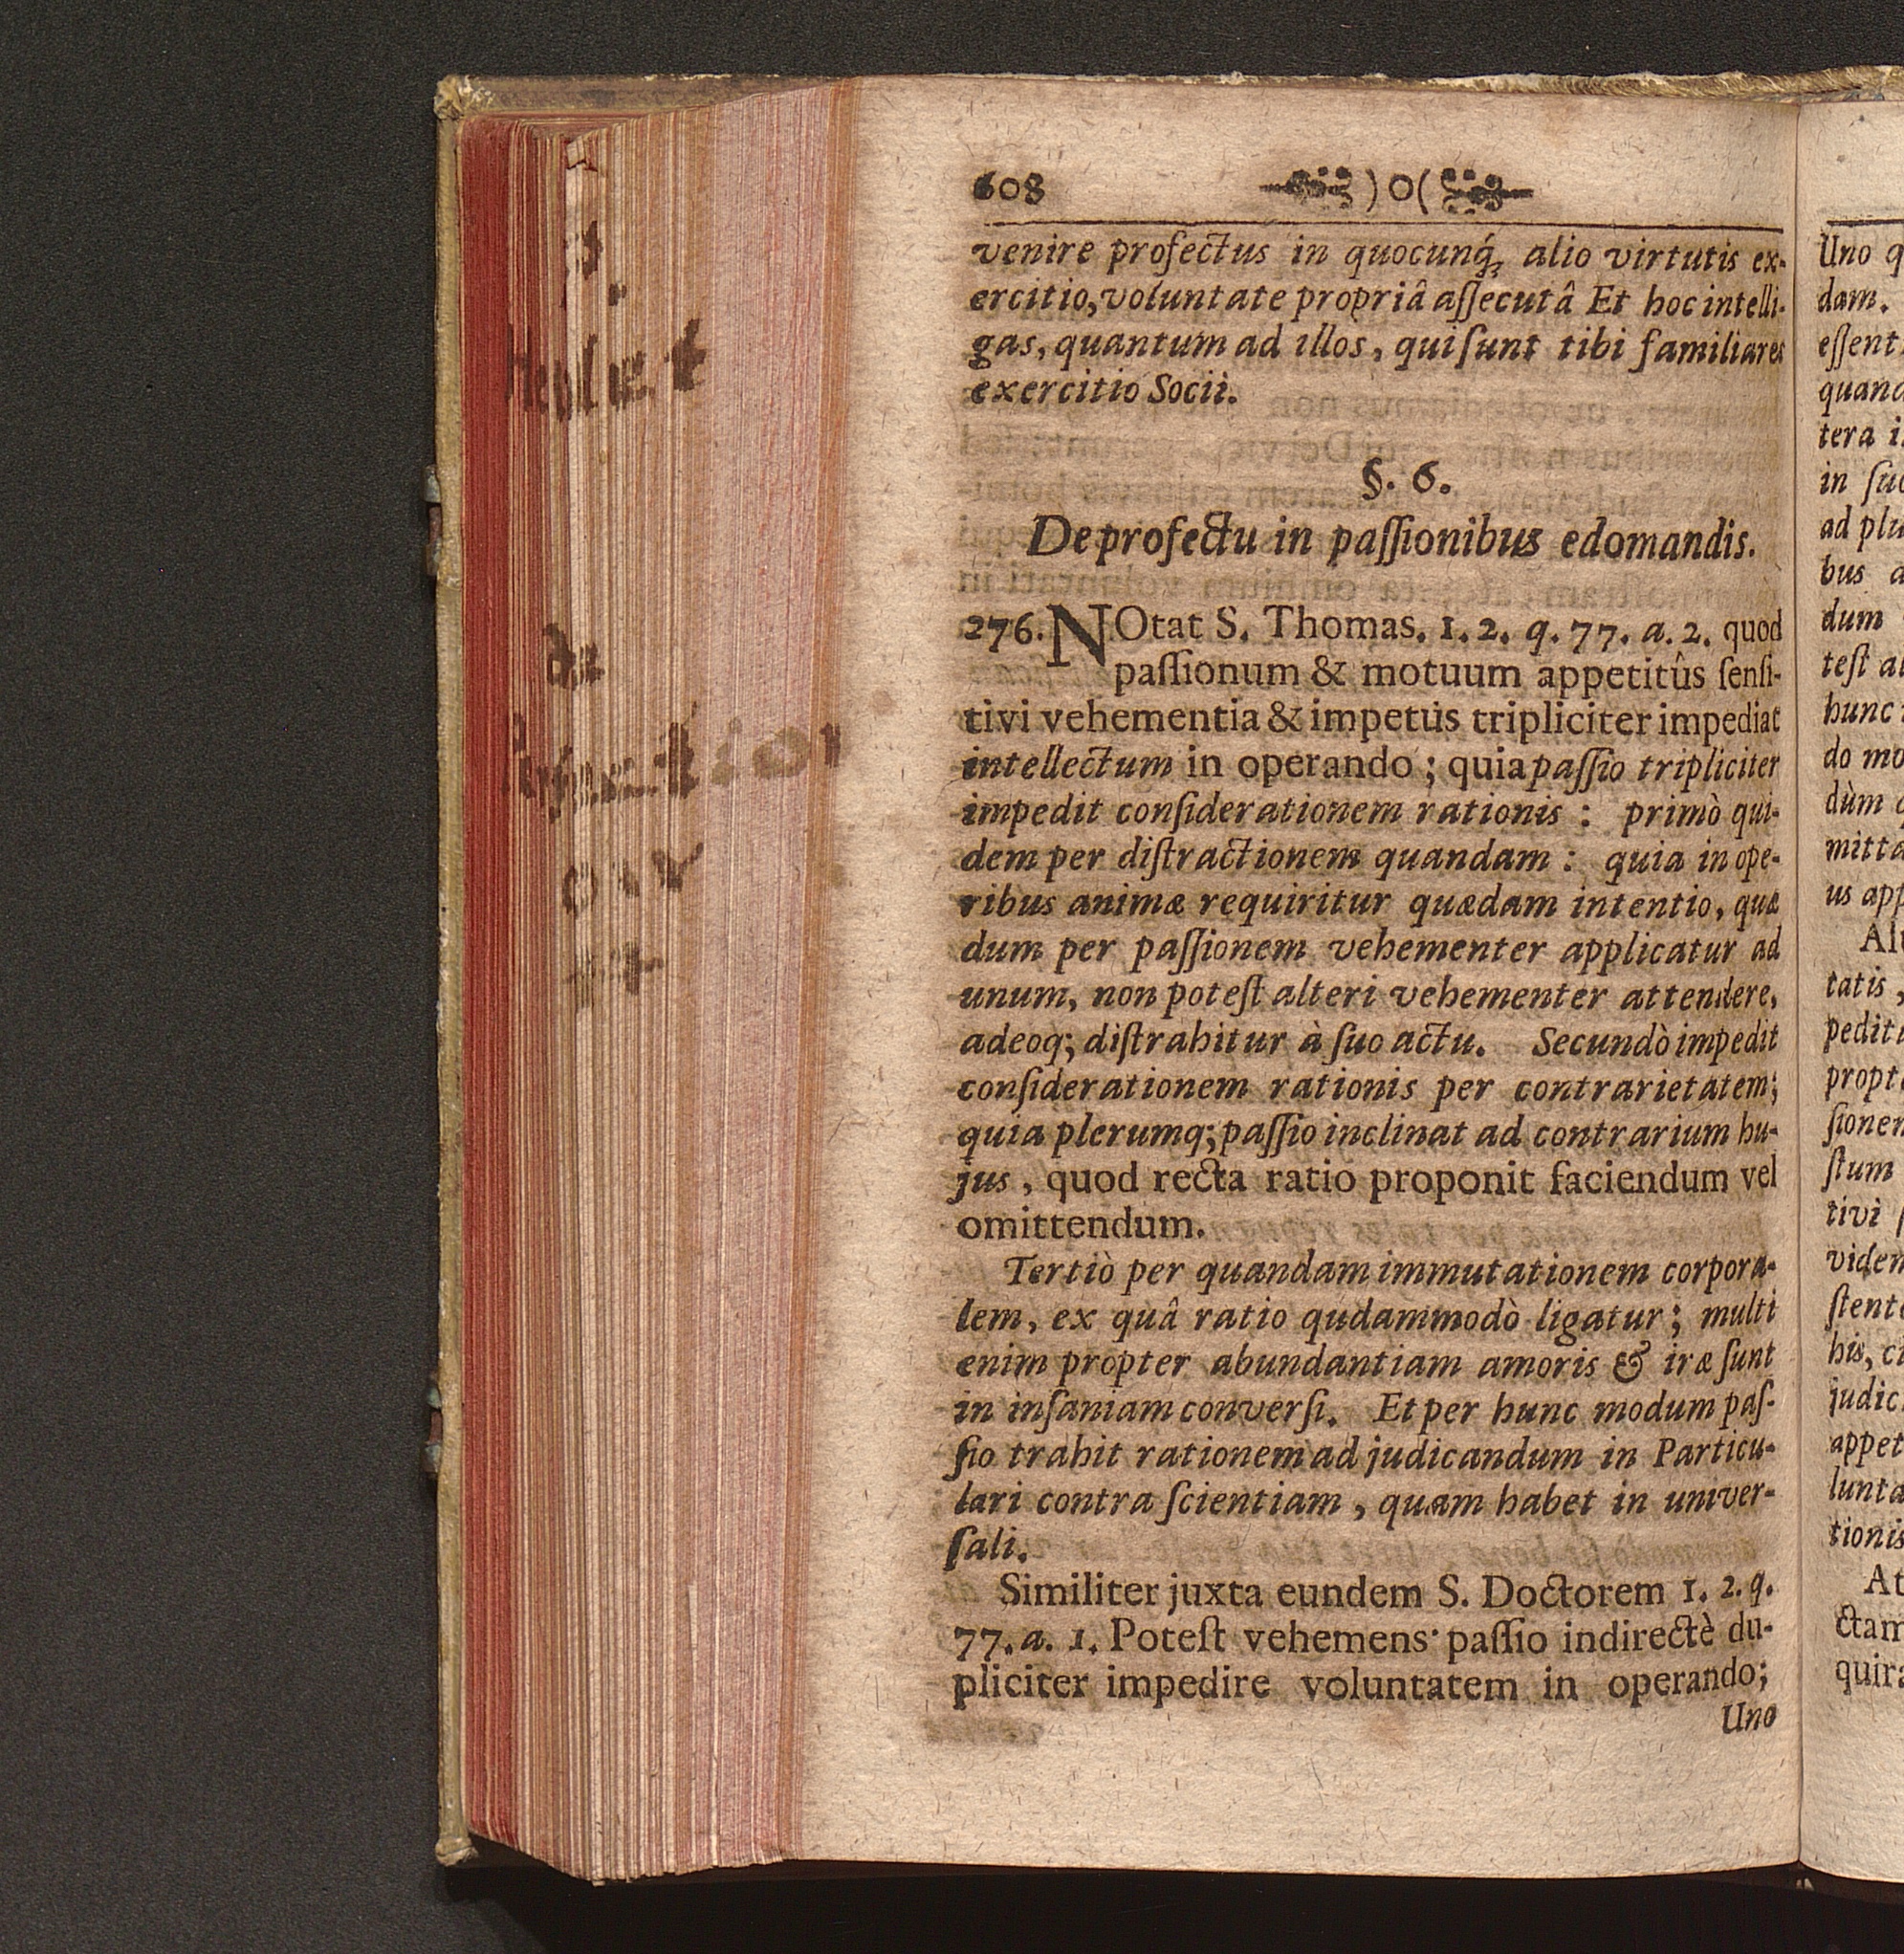 608 )o(
venire profectus in quocunq́ꝫ alio virtutis ex-
ercitio, voluntate propriâ aſſecutâ Et hoc intelli-
gas, quantum ad illos, qui ſunt tibi familiares
exercitio Socii.
§. 6.
De profectu in paſſionibus edomandis.
276. NOtat S. Thomas. 1. 2. q. 77. a. 2. quod
paſſionum & motuum appetitûs ſenſi-
tivi vehementia & impetus tripliciter impediat
intellectum in operando ; quia paſſio tripliciter
impedit conſiderationem rationis : primò qui-
dem per diſtractionem quandam : quia in ope-
ribus animæ requiritur quædam intentio, quæ
dum per paſſionem vehementer applicatur ad
unum, non poteſt alteri vehementer attendere,
adeoq; diſtrahitur à ſuo actu. Secundò impedit
conſiderationem rationis per contrarietatem;
quia plerumq; paſſio inclinat ad contrarium hu-
jus , quod recta ratio proponit faciendum vel
omittendum.
Tertiò per quandam immutationem corpora-
lem, ex quâ ratio qudammodò ligatur ; multi
enim propter abundantiam amoris & iræ ſunt
in inſaniam converſi. Et per hunc modum paſ-
ſio trahit rationem ad judicandum in Particu-
lari contra ſcientiam , quam habet in univer-
ſali.
Similiter juxta eundem S. Doctorem 1. 2. q.
77. a. 1. Poteſt vehemens paſſio indirectè du-
pliciter impedire voluntatem in operando;
Uno
Uno
dam.
eſſent
tera
in
bus
dum
hunc
do
dùm
us
tatis ,
ſtum
tivi
his,